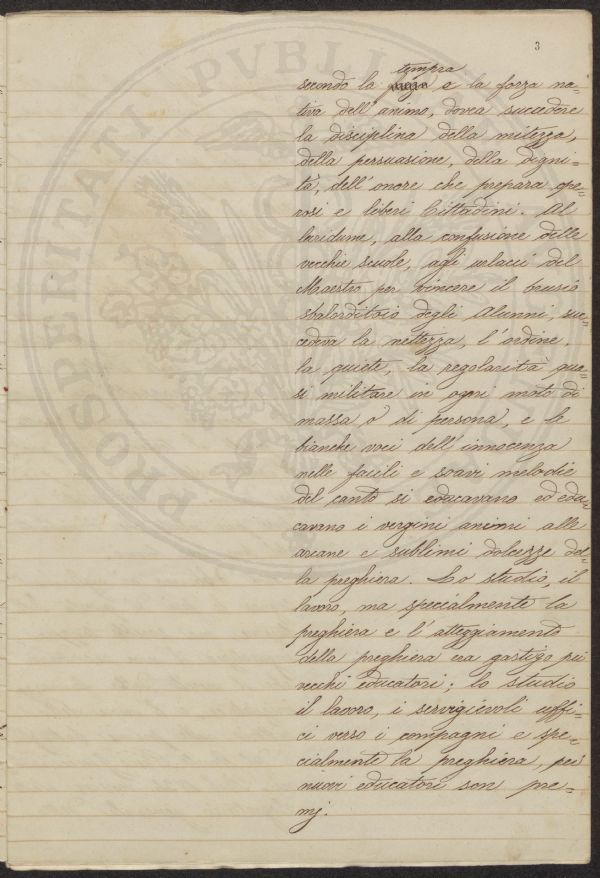 3
tempra
secondo la e la forza na=
tiva dell' animo, dovea succedere
la disciplina della mitezza,
della persuasione, della digni=
tà, dell' onore che prepara ope=
rosi e liberi Cittadini. Al
laridume, alla confusione delle
vecchie scuole, agli urlacci del
Maestro per vincere il brusio
sbalorditoio degli Alunni, suc=
cedeva la nettezza, l' ordine,
la quiete, la regolarità qua=
si militare in ogni moto di
massa o di persona, e le
bianche voci dell' innocenza
nelle facili e soavi melodie
del canto si educavano ed edu=
cavano i vergini animi alle
arcane e sublimi dolcezze del=
la preghiera. Lo studio, il
lavoro, ma specialmente la
preghiera e l' atteggiamento
della preghiera era gastigo pei
vecchi educatori; lo studio
il lavoro, i servigievoli uffi=
ci verso i compagni e spe=
cialmente la preghiera, pei
nuovi educatori son pre=
mj.
PROSPERITATI PVBLI